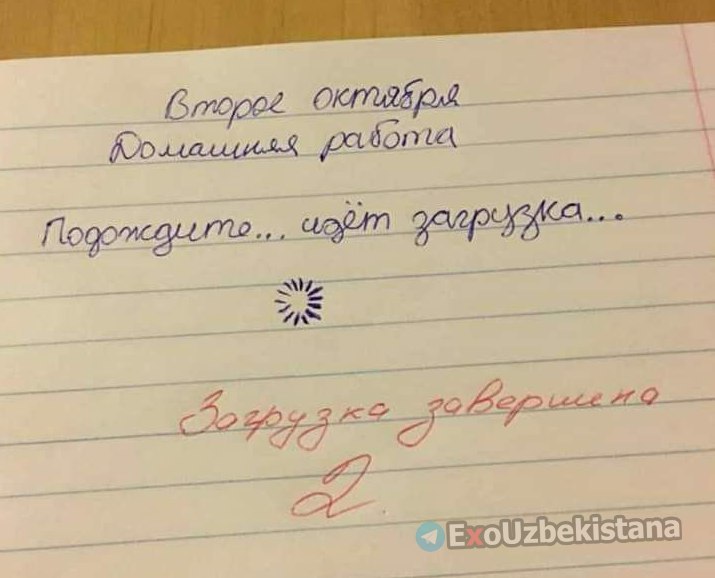 Второе октября
Домашняя работа
Подождите... идёт загрузка...
Загрузка завершена
2
ExoUzbekistana